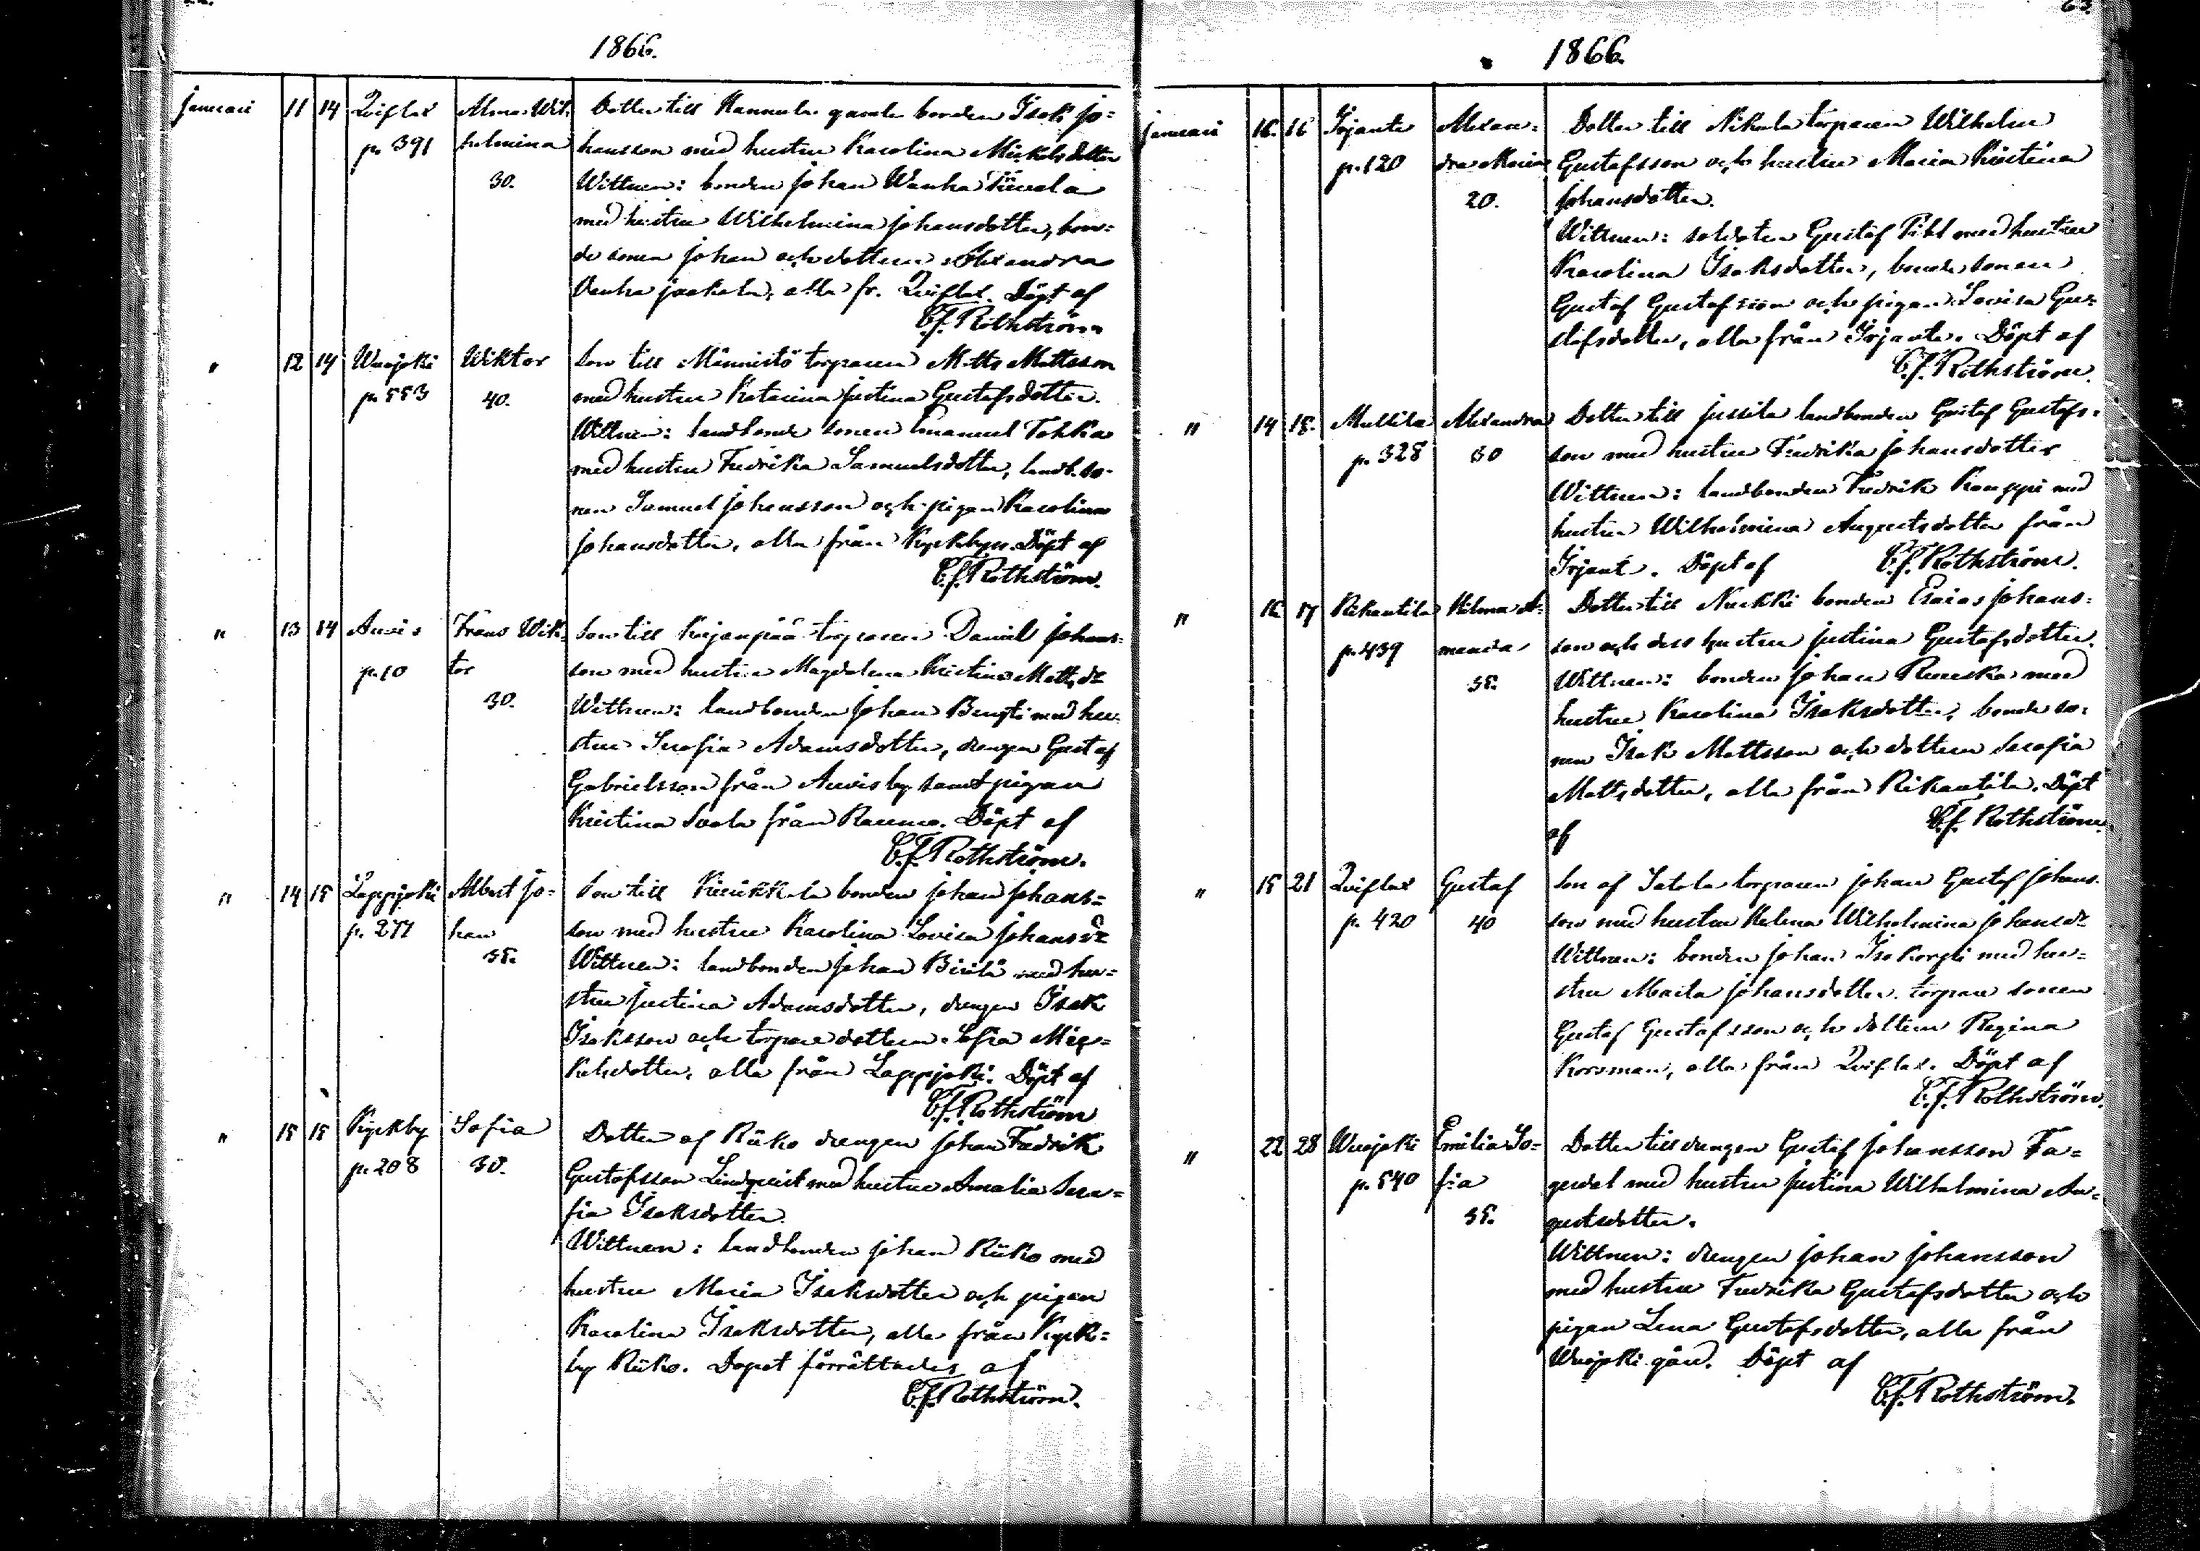 1866.
Januari 11 14 Lviflax Alma Wil- Dotter till Hannula gamla bonden Isak Jo-
p. 391 helmina hansson med hustru Karolina Mickelsdotter
30. Wittnen: bonden Johan Wanha
med hustru Wilhelmina Johansdotter, bon-
de sonen Johan och dottern Alexandra
Vanha jaakola, alla fr. Lviflax. Döpt af
C.J. Rothström
" 12 14 Wuojoki Wiktor Son till Männistö torparen Matts Mattsson
p. 553 40. med hustru Katarina Justina Gustafsdotter.
Wittnen: landbonde sonen Emanuel Tokka
med hustru Fredrika Samuelsdotter, landb. so-
nen Samuel Johansson och pigan Karolina
Johansdotter, alla från Kyrkbyn. Döpt af
C.J. Rothström.
" 13 14 Auvis Frans Wik- Son till Kirjanpää torparen Daniel Johans-
p. 10 tor son med hustru Magdalena Kristina Matts dr
30. Wittnen: landbonden Johan Bengti med hu-
stru Serafia Adamsdotter, drengen Gustaf
Gabrielsson från Auvis by samt pigan
Kristina Svala från Raumo. Döpt af
C.J. Rothström.
" 14 15 Lappjoki Albert Jo- Son till bonden Johan Johans-
p. 277 han son med hustru Karolina Lovisa Johans dr
35. Wittnen: landbonden Johan Birilä med hu-
stru Justina Adamsdotter, drengen Isak
Isaksson och torpare dottern Sofia Mic-
kelsdotter, alla från Lappjoki. Döpt af
C.J. Rothström
" 15 15 Kyrkby Sofia Dotter af Riiko drengen Johan Fredrik
p. 208 30. Gustafsson Lindqvist med hustru Amalia Sera-
fia Isaksdotter.
Wittnen: landbonden Johan Riiko med
hustru Maria Isaksdotter och pigan
Karolina Isaksdotter, alla från Kyrk-
by Riiko. Dopet förrättades af
C.J. Rothström.
63.
1866.
Januari 16 16 Irjante Alexan- Dotter till Nikula torparen Wilhelm
p. 120 dra Maria Gustafsson och hustru Maria Kristina
20. Johansdotter.
Wittnen: soldaten Gustaf Pihl med hustru
Karolina Isaksdotter, bonde sonen
Gustaf Gustafsson och pigan Lovisa Gu-
stafsdotter, alla från Irjante. Döpt af
C.J. Rothström.
" 14 15. Mullila Alexandra Dotter till Jussila landbonden Gustaf Gustafs-
p. 328 30 son med hustru Fredrika Johansdotter
Wittnen: landbonden Fredrik Kauppi med
hustru Wilhelmina Augustsdotter från
Irjant. Döpt af C.J. Rothström.
" 16 17 Rikantila Hilma A- Dotter till Nuekki bonden Esaias Johans-
p. 439 manda son och dess hustru Justina Gustafsdotter.
35. Wittnen: bonden Johan Ruuska med
hustru Karolina Isaksdotter, bonde so-
nen Isak Mattsson och dottern Serafia
Mattsdotter, alla från Rikantila. Döpt
af C.J. Rothström.
" 15 21 Lviflax Gustaf Son af Satola torparen Johan Gustaf Johans-
p. 420 40 son med hustru Helena Wilhelmina Johans dr
Wittnen: bonden Johan Isokorpi med hu-
stru Maria Johansdotter, torpare sonen
Gustaf Gustafsson och dottern Regina
Korsman, alla från Lviflax. Döpt af
C.J. Rothström.
" 22 28 Wuojoki Emilia So- Dotter till drengen Gustaf Johansson Fa-
p. 540 fia gerdal med hustru Justina Wilhelmina Au-
35. gustsdotter.
Wittnen: drengen Johan Johansson
med hustru Fredrika Gustafsdotter och
pigan Lena Gustafsdotter, alla från
Wuojoki gård. Döpt af
C.J. Rothström.